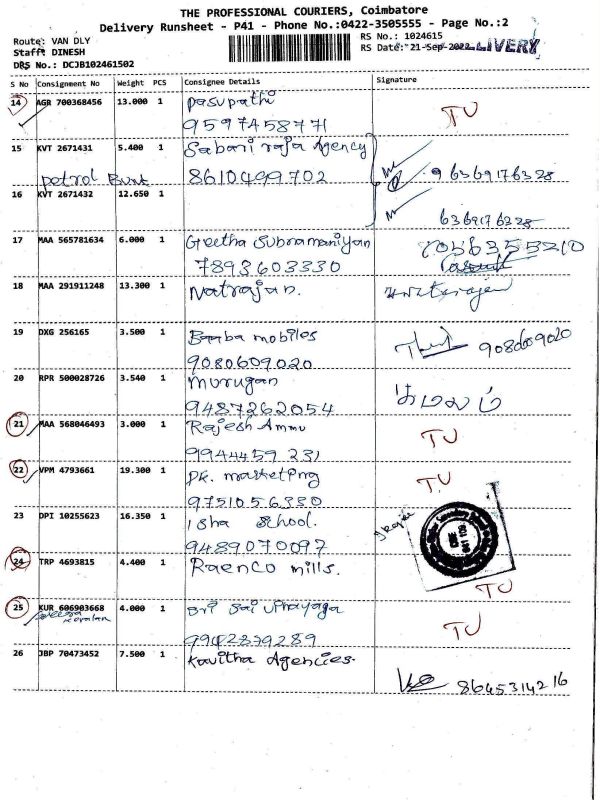 THE PROFESSIONAL COURIERS, Coimbatore
Delivery Runsheet - P41 - Phone No.:0422-3505555 - Page No.:2
Route: VAN DLY
Stafft DINESH
DRS No.: DCJB102461502
RS No.: 1024615
RS Date: 21-Sep-2022
LIVERY
S No Consignment No Weight PCS Consignee Details Signature
14 AGR 700368456 13.000 1 pasupathi TU
9597458771
15 KVT 2671431 5.400 1 Sabari raja Agency
petrol Bunk 8610499702 96369176328
16 KVT 2671432 12.650 1
6369176328
17 MAA 565781634 6.000 1 Geetha Subramaniyan
7893603330
18 MAA 291911248 13.300 1 Natrajan.
19 DXG 256165 3.500 1 Baaba mobiles
9080609020
20 RPR 500028726 3.540 1 Murugan கமலம்
9487262054
21 MAA 568046493 3.000 1 Rajesh Ammu TU
9944459 231
22 VPM 4793661 19.300 1 PK. marketing TU
9751056330
23 DPI 10255623 16.350 1 isha School.
9489070097
24 TRP 4693815 4.400 1 Raenco mills. TU
25 KUR 606903668 4.000 1 Sri Sai vinayaga TU
9942879289
26 JBP 70473452 7.500 1 Kavitha Agencies.
8645314216